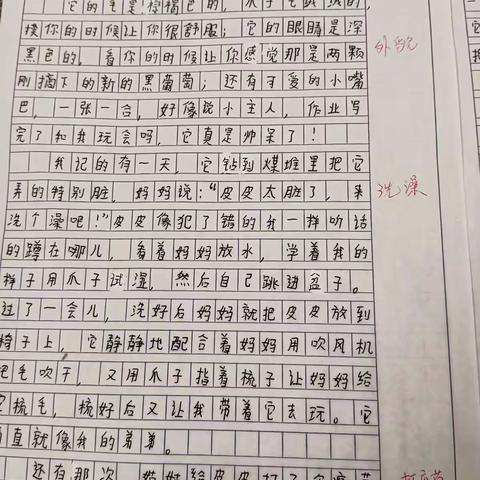 它的毛是棕褐色的，爪子毛跳跳的，
扑你的时候让你很舒服；它的眼睛是深
黑色的。看你的时候让你感觉那是两颗
刚摘下的新的黑葡萄；还有可爱的小嘴
巴，一张一合，好像说小主人，作业写
完了和我玩会吗，它真是帅呆了！
外貌
我记的有一天，它钻到煤堆里把它
弄的特别脏，妈妈说：“皮皮太脏了，来
洗个澡吧！”皮皮像犯了错的我一样听话
的蹲在哪儿，看着妈妈放水，学着我的
样子用爪子试湿，然后自己跳进盆子。
过了一会儿，洗好后妈妈就把皮皮放到
椅子上，它静静地配合着妈妈用吹风机
把毛吹干，又用爪子指着梳子让妈妈给
它梳毛，梳好后又让我带着它去玩。它
直就像我的弟弟。
洗澡
还有那次，姑姑给皮皮打了